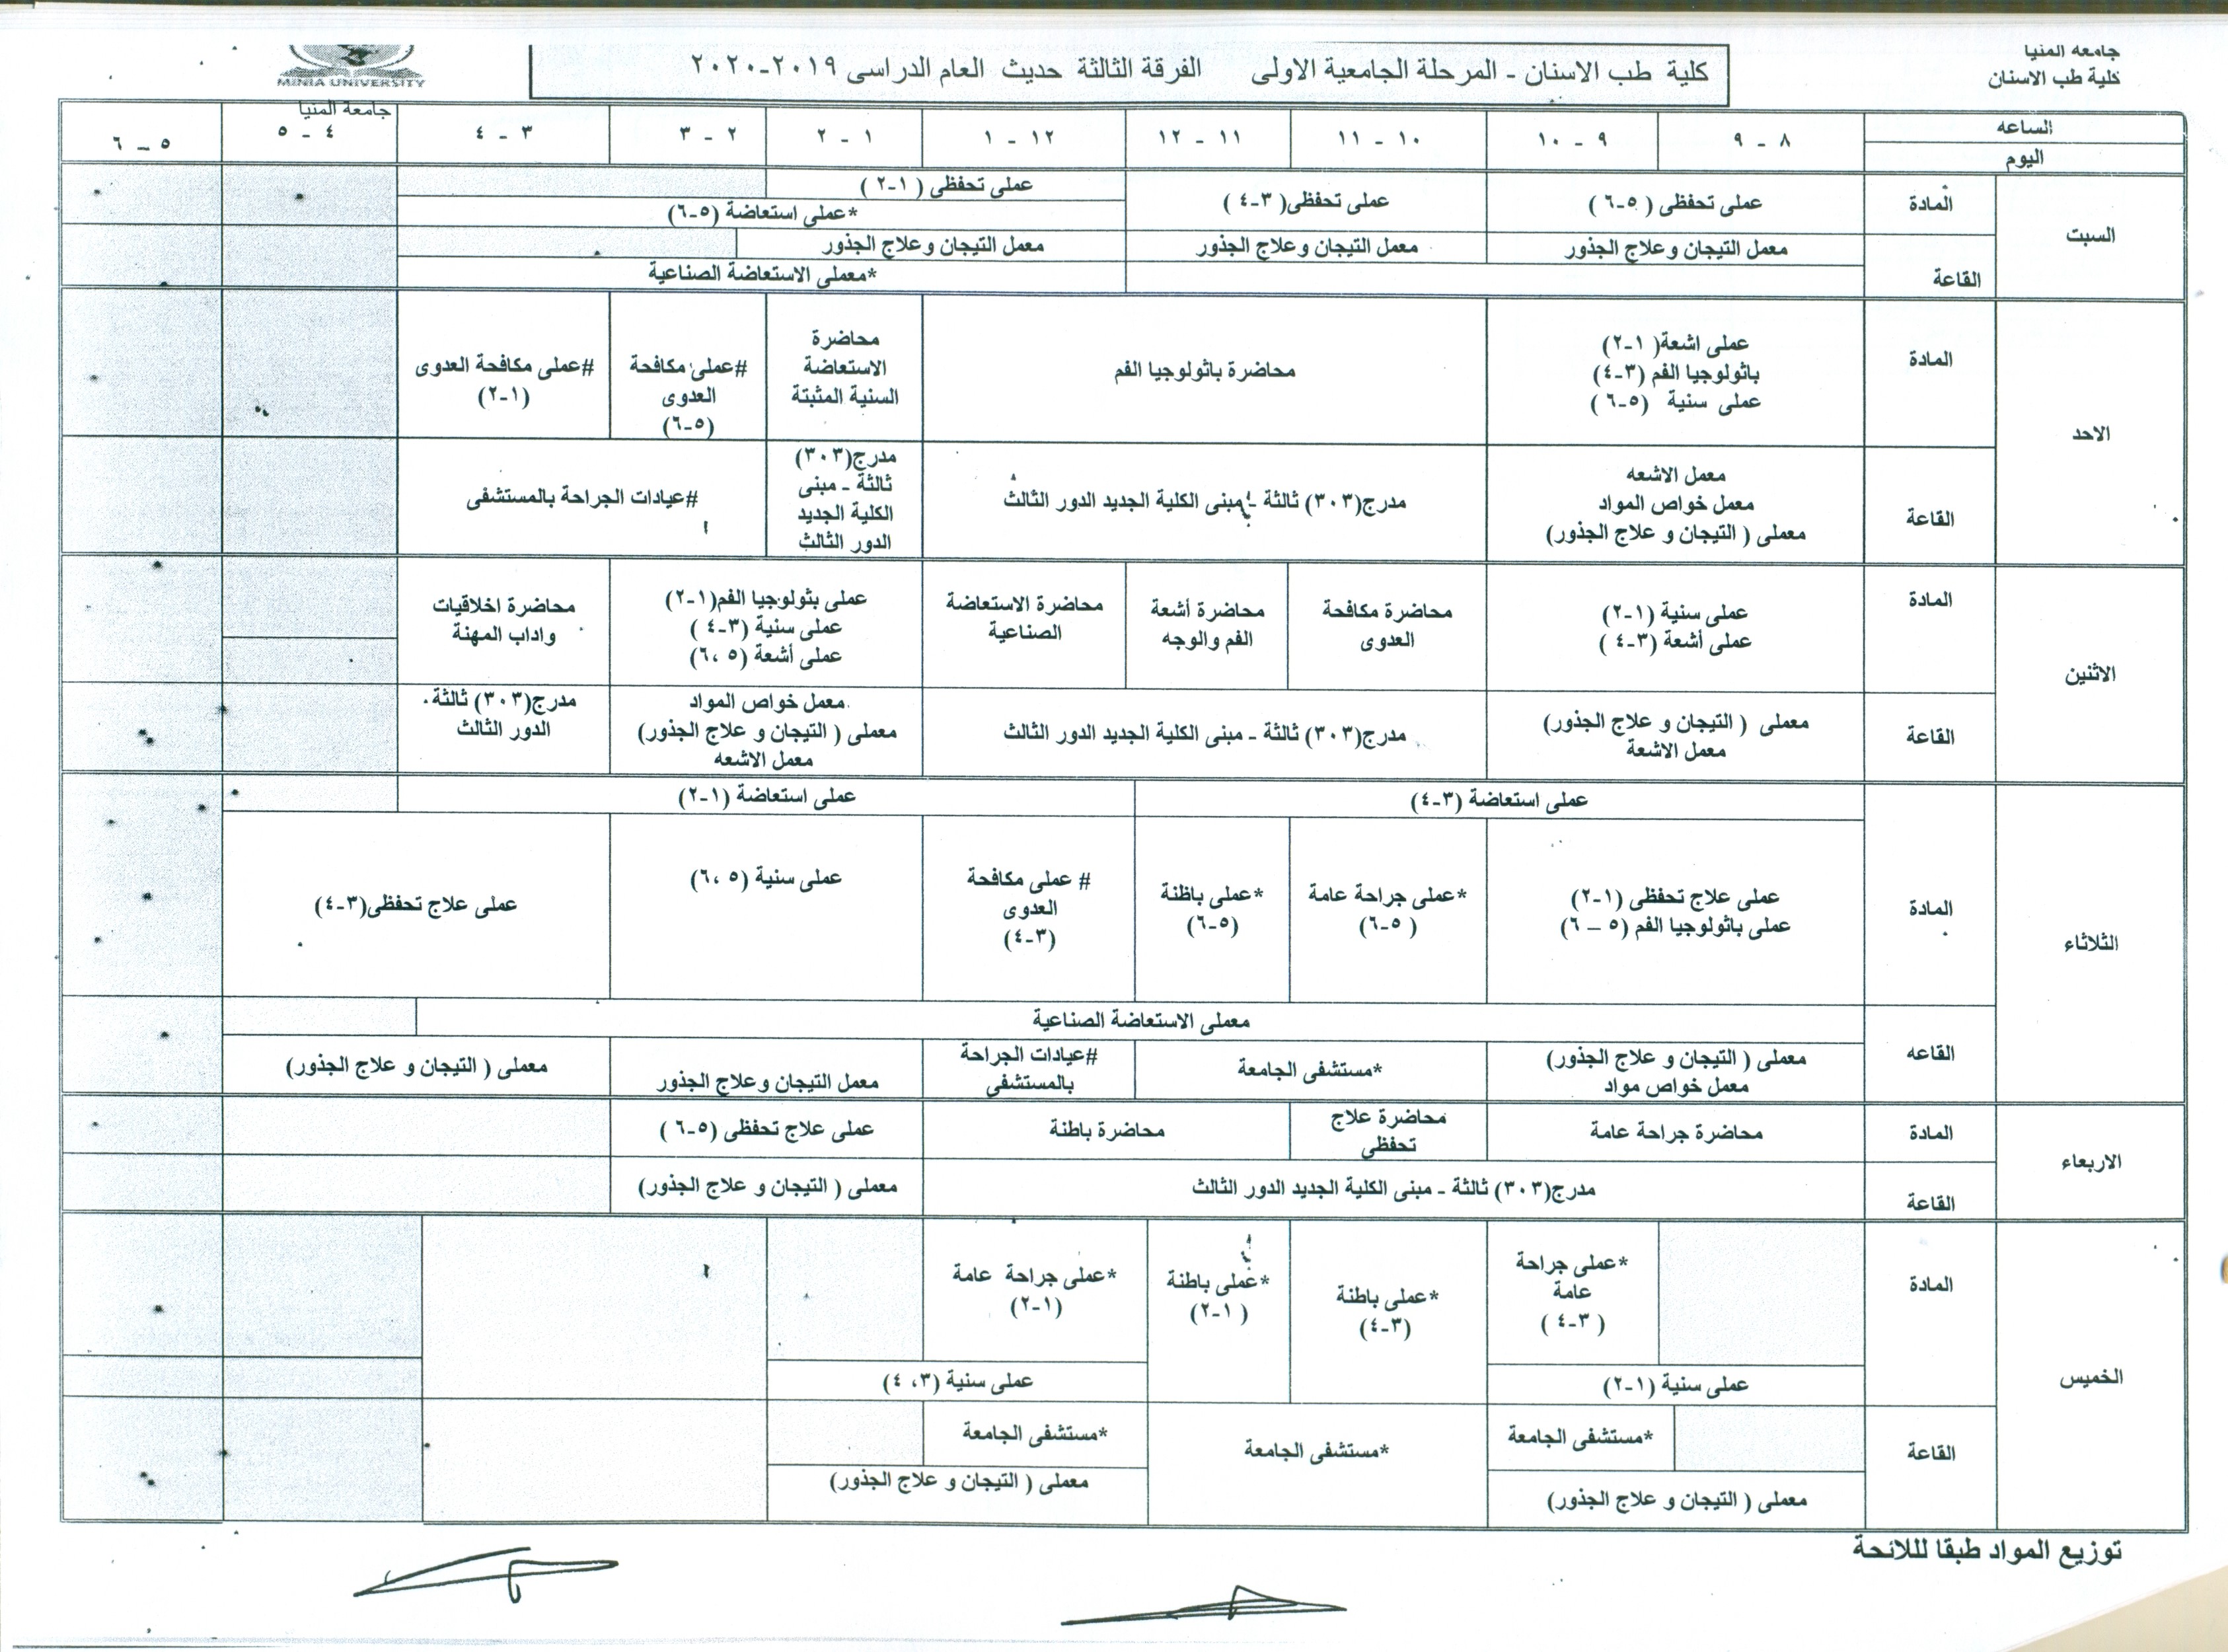 جامعه المنيا
كلية طب الاسنان
كلية طب الاسنان - المرحلة الجامعية الاولى الفرقة الثالثة حديث العام الدراسى ٢٠١٩-٢٠٢٠
MINIA UNIVERSITY
جامعة المنيا
الساعه
اليوم
٨ - ٩
٩ - ١٠
١٠ - ١١
١١ - ١٢
١٢ - ١
١ - ٢
٢ - ٣
٣ - ٤
٤ - ٥
٥ - ٦
السبت
المادة
عملى تحفظى ( ٥-٦ )
عملى تحفظى( ٣-٤ )
عملى تحفظى ( ١-٢ )
*عملى استعاضة (٥-٦)
القاعة
معمل التيجان وعلاج الجذور
معمل التيجان وعلاج الجذور
معمل التيجان وعلاج الجذور
*معملى الاستعاضة الصناعية
الاحد
المادة
عملى اشعة( ١-٢)
باثولوجيا الفم (٣-٤)
عملى سنية (٥-٦ )
محاضرة باثولوجيا الفم
محاضرة
الاستعاضة
السنية المثبتة
#عملى مكافحة
العدوى
(٥-٦)
#عملى مكافحة العدوى
(١-٢)
القاعة
معمل الاشعه
معمل خواص المواد
معملى ( التيجان و علاج الجذور)
مدرج(٣٠٣) ثالثة - مبنى الكلية الجديد الدور الثالث
مدرج(٣٠٣)
ثالثة - مبنى
الكلية الجديد
الدور الثالث
#عيادات الجراحة بالمستشفى
الاثنين
المادة
عملى سنية (١-٢)
عملى أشعة (٣-٤ )
محاضرة مكافحة
العدوى
محاضرة أشعة
الفم والوجه
محاضرة الاستعاضة
الصناعية
عملى بثولوجيا الفم(١-٢)
عملى سنية (٣-٤ )
عملى أشعة (٥ ،٦)
محاضرة اخلاقيات
واداب المهنة
القاعة
معملى ( التيجان و علاج الجذور)
معمل الاشعة
مدرج(٣٠٣) ثالثة - مبنى الكلية الجديد الدور الثالث
معمل خواص المواد
معملى ( التيجان و علاج الجذور)
معمل الاشعه
مدرج(٣٠٣) ثالثة
الدور الثالث
الثلاثاء
المادة
عملى استعاضة (٣-٤)
عملى استعاضة (١-٢)
عملى علاج تحفظى (١-٢)
عملى باثولوجيا الفم (٥ – ٦)
*عملى جراحة عامة
(٥-٦ )
*عملى باظنة
(٥-٦)
# عملى مكافحة
العدوى
(٣-٤)
عملى سنية (٥ ،٦)
عملى علاج تحفظى(٣-٤)
القاعه
معملى الاستعاضة الصناعية
معملى ( التيجان و علاج الجذور)
معمل خواص مواد
*مستشفى الجامعة
#عيادات الجراحة
بالمستشفى
معمل التيجان وعلاج الجذور
معملى ( التيجان و علاج الجذور)
الاربعاء
المادة
محاضرة جراحة عامة
محاضرة علاج
تحفظى
محاضرة باطنة
عملى علاج تحفظى (٥-٦ )
القاعة
مدرج(٣٠٣) ثالثة - مبنى الكلية الجديد الدور الثالث
معملى ( التيجان و علاج الجذور)
الخميس
المادة
*عملى جراحة
عامة
(٣-٤ )
*عملى باطنة
(٣-٤)
*عملى باطنة
(١-٢ )
*عملى جراحة عامة
(١-٢)
عملى سنية (١-٢)
عملى سنية (٣، ٤)
القاعة
*مستشفى الجامعة
*مستشفى الجامعة
*مستشفى الجامعة
معملى ( التيجان و علاج الجذور)
معملى ( التيجان و علاج الجذور)
توزيع المواد طبقا لللائحة